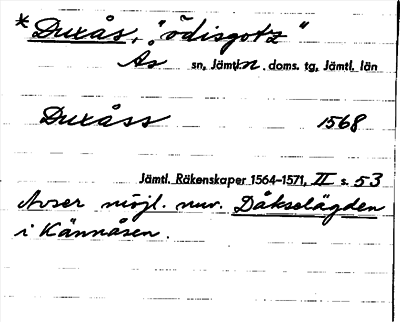 * Duxås, "ödisgotz"
Ås sn, Jämtl. n. doms. tg, Jämtl. län
Duxåss 1568
Jämtl. Räkenskaper 1564–1571, II s. 53
Avser möjl. nuv. Dåkselägden
i Kännåsen.